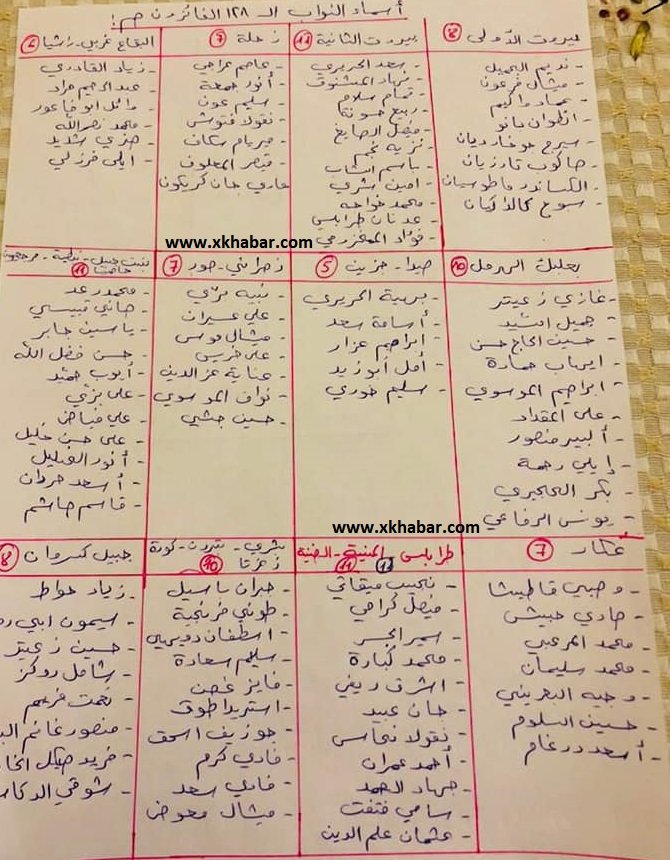 أسماء النواب الـ ١٢٨ الفائزون هم:
بيروت الأولى ٨
- نديم الجميل
- ميشال فرعون
- عماد واكيم
- انطوان بانو
- سيرج جوخادريان
- هاكوب تارزيان
- الكساندر ماطوسيان
- سبوح كالباكيان
بيروت الثانية ١١
- سعد الحريري
- نهاد المشنوق
- تمام سلام
- ربيع حسونة
- فيصل الصايغ
- نزيه نجم
- باسم الشاب
- امين شري
- محمد خواجه
- عدنان طرابلسي
- فؤاد المخزومي
زحلة ٧
- عاصم عراجي
- أنور جمعة
- سليم عون
- نقولا فتوش
- ميريام سكاف
- قيصر المعلوف
- هادي جان كريكون
البقاع غربي - راشيا ٦
- زياد القادري
- عبد الرحيم مراد
- وائل ابو فاعور
- محمد نصرالله
- هنري شديد
- ايلي فرزلي
www.xkhabar.com
بعلبك الهرمل ١٠
- غازي زعيتر
- جميل السيد
- حسين الحاج حسن
- ايهاب حمادة
- ابراهيم الموسوي
- علي المقداد
- ألبير منصور
- إيلي رحمة
- بكر الحجيري
- يونس الرفاعي
صيدا - جزين ٥
- بهية الحريري
- أسامة سعد
- ابراهيم عزار
- أمل أبو زيد
- سليم خوري
زهراني - صور ٧
- نبيه بري
- علي عسيران
- ميشال موسى
- علي خريس
- عناية عز الدين
- نواف الموسوي
- حسين جشي
بنت جبيل - نبطية - مرجعيون
حاصبيا ١١
- محمد رعد
- هاني قبيسي
- ياسين جابر
- حسن فضل الله
- أيوب حميد
- علي بزي
- علي فياض
- علي حسن خليل
- أنور الخليل
- أسعد حردان
- قاسم هاشم
www.xkhabar.com
عكار ٧
- وهبي قاطيشا
- هادي حبيش
- محمد المرعبي
- محمد سليمان
- وجيه البعريني
- حسين السلوم
- أسعد درغام
طرابلس - المنية - الضنية
١١
- نجيب ميقاتي
- فيصل كرامي
- سمير الجسر
- محمد كبارة
- اشرف ريفي
- جان عبيد
- نقولا نحاس
- أحمد عمران
- جهاد الصمد
- سامي فتفت
- عثمان علم الدين
بشري - بترون - كورة
زغرتا ١٠
- جبران باسيل
- طوني فرنجية
- اسطفان دويهي
- سليم سعادة
- فايز غصن
- استريدا طوق
- جوزيف اسحق
- فادي كرم
- فادي سعد
- ميشال معوض
جبيل كسروان ٨
- زياد حواط
- سيمون ابي
- حسين زعيتر
- شامل روكز
- نعمت فرهم
- منصور غانم
- فريد هيكل
- شوقي الدكاش